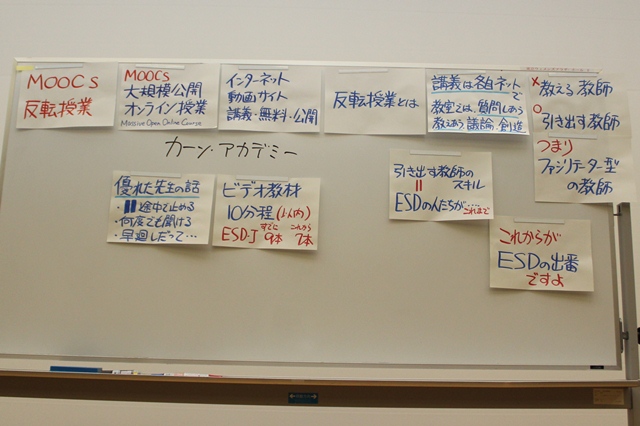 MOOCs
反転授業
MOOCs
大規模公開
オンライン授業
Massive Open Online Course
インターネット
動画サイト
講義・無料・公開
反転授業とは
講義は各自ネット
で
教室では、質問しあう
教えあう 議論、創造
× 教える 教師
○
引き出す教師
つまり
ファシリテーター型
の教師
カーン・アカデミー
優れた先生の話
途中で止める
・何度でも聞ける
・早廻しだって…
ビデオ教材
10分程(以内)
ESD-J すでに 9本 これから 7本
引き出す教師の
スキル
=
ESDの人たちが…
これまで
これからが
ESDの出番
ですよ